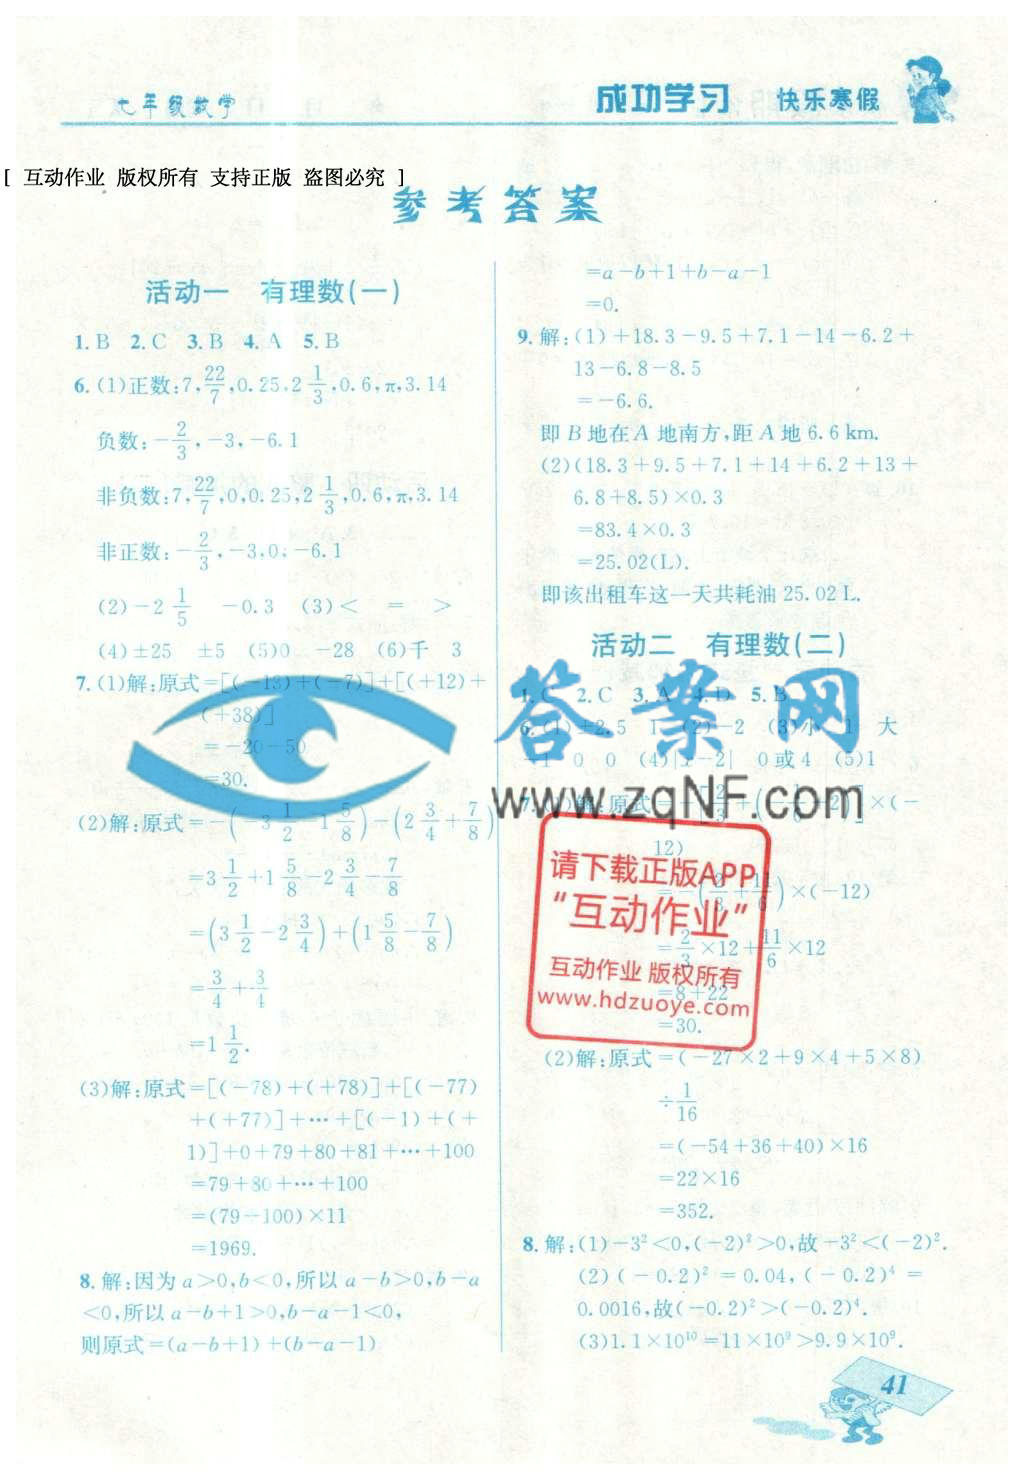 七年级数学
成功学习 快乐寒假
[ 互动作业 版权所有 支持正版 盗图必究 ]
参考答案
活动一 有理数(一)
1.B 2.C 3.B 4.A 5.B
6.(1)正数:7,22/7,0.25,2 1/3,0.6,π,3.14
负数:-2/3,-3,-6.1
非负数:7,22/7,0,0.25,2 1/3,0.6,π,3.14
非正数:-2/3,-3,0,-6.1
(2)-2 1/5 -0.3 (3)< = >
(4)±25 ±5 (5)0 -28 (6)千 3
7.(1)解:原式=[(-13)+(-7)]+[(+12)+
(+38)]
=-20-50
=30.
(2)解:原式=-(-3 1/2-1 5/8)-(2 3/4+7/8)
=3 1/2+1 5/8-2 3/4-7/8
=(3 1/2-2 3/4)+(1 5/8-7/8)
=3/4+3/4
=1 1/2.
(3)解:原式=[(-78)+(+78)]+[(-77)
+(+77)]+…+[(-1)+(+
1)]+0+79+80+81+…+100
=79+80+…+100
=(79+100)×11
=1969.
8.解:因为a>0,b<0,所以a-b>0,b-a
<0,所以a-b+1>0,b-a-1<0,
则原式=(a-b+1)+(b-a-1)
=a-b+1+b-a-1
=0.
9.解:(1)+18.3-9.5+7.1-14-6.2+
13-6.8-8.5
=-6.6.
即B地在A地南方,距A地6.6 km.
(2)(18.3+9.5+7.1+14+6.2+13+
6.8+8.5)×0.3
=83.4×0.3
=25.02(L).
即该出租车这一天共耗油25.02 L.
活动二 有理数(二)
1.C 2.C 3.A 4.D 5.B
6.(1)±2.5 1 (2)-2 (3)小 1 大
-1 0 0 (4)|x-2| 0或4 (5)1
7.(1)解:原式=-[2/3+(-1/6+2)]×(-
12)
=-(2/3+11/6)×(-12)
=2/3×12+11/6×12
=8+22
=30.
(2)解:原式=(-27×2+9×4+5×8)
÷1/16
=(-54+36+40)×16
=22×16
=352.
8.解:(1)-3²<0,(-2)²>0,故-3²<(-2)².
(2)(-0.2)²=0.04,(-0.2)⁴=
0.0016,故(-0.2)²>(-0.2)⁴.
(3)1.1×10¹⁰=11×10⁹>9.9×10⁹.
答案网
www.zqNF.com
请下载正版APP
“互动作业”
互动作业 版权所有
www.hdzuoye.com
41